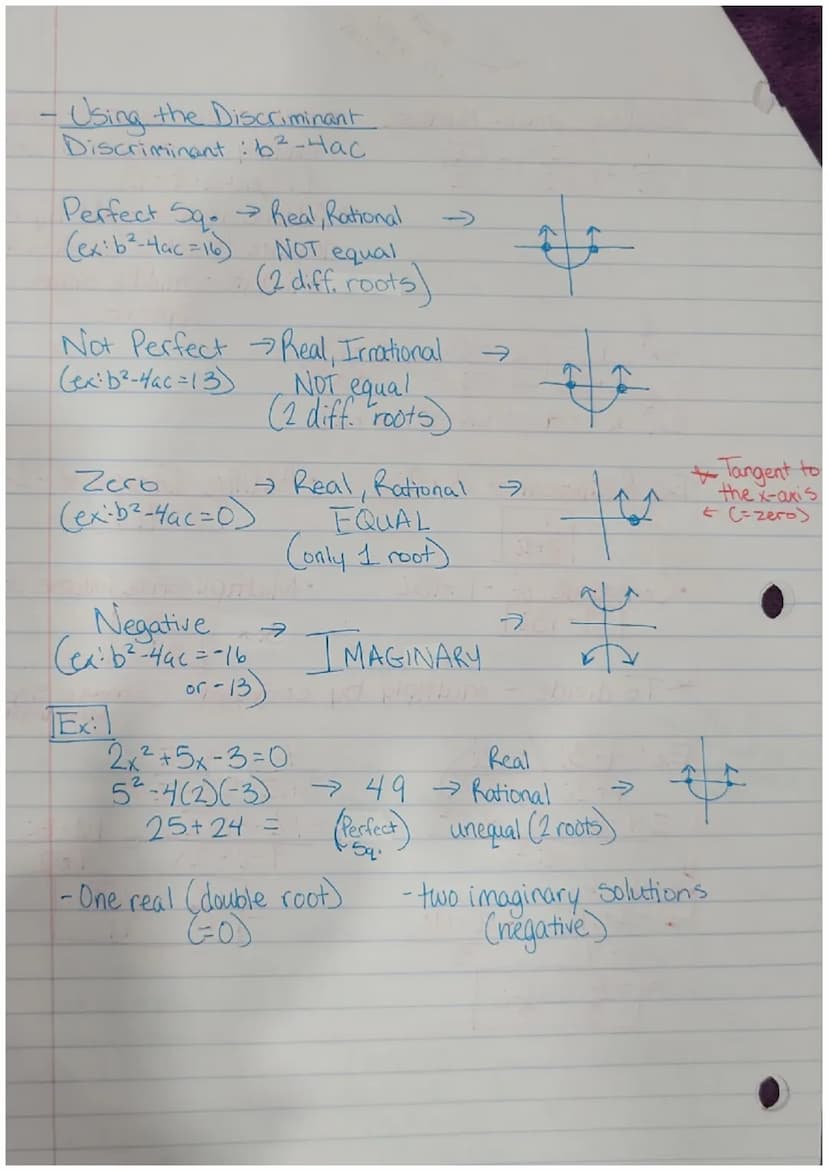 - Using the Discriminant
Discriminant : b²-4ac
Perfect Sq. → Real, Rational →
(ex: b²-4ac = 16) NOT equal
(2 diff. roots)
Not Perfect → Real, Irrational →
(ex: b²-4ac = 13) NOT equal
(2 diff. roots)
Zero → Real, Rational →
(ex: b²-4ac=0) EQUAL
(only 1 root)
* Tangent to
the x-axis
← (=zero)
Negative → IMAGINARY →
(ex: b²-4ac = -16
or -13)
Ex:
2x²+5x-3=0 Real
5²-4(2)(-3) → 49 → Rational →
25+24 = (Perfect Sq.) unequal (2 roots)
- One real (double root) - two imaginary solutions
(=0) (negative)